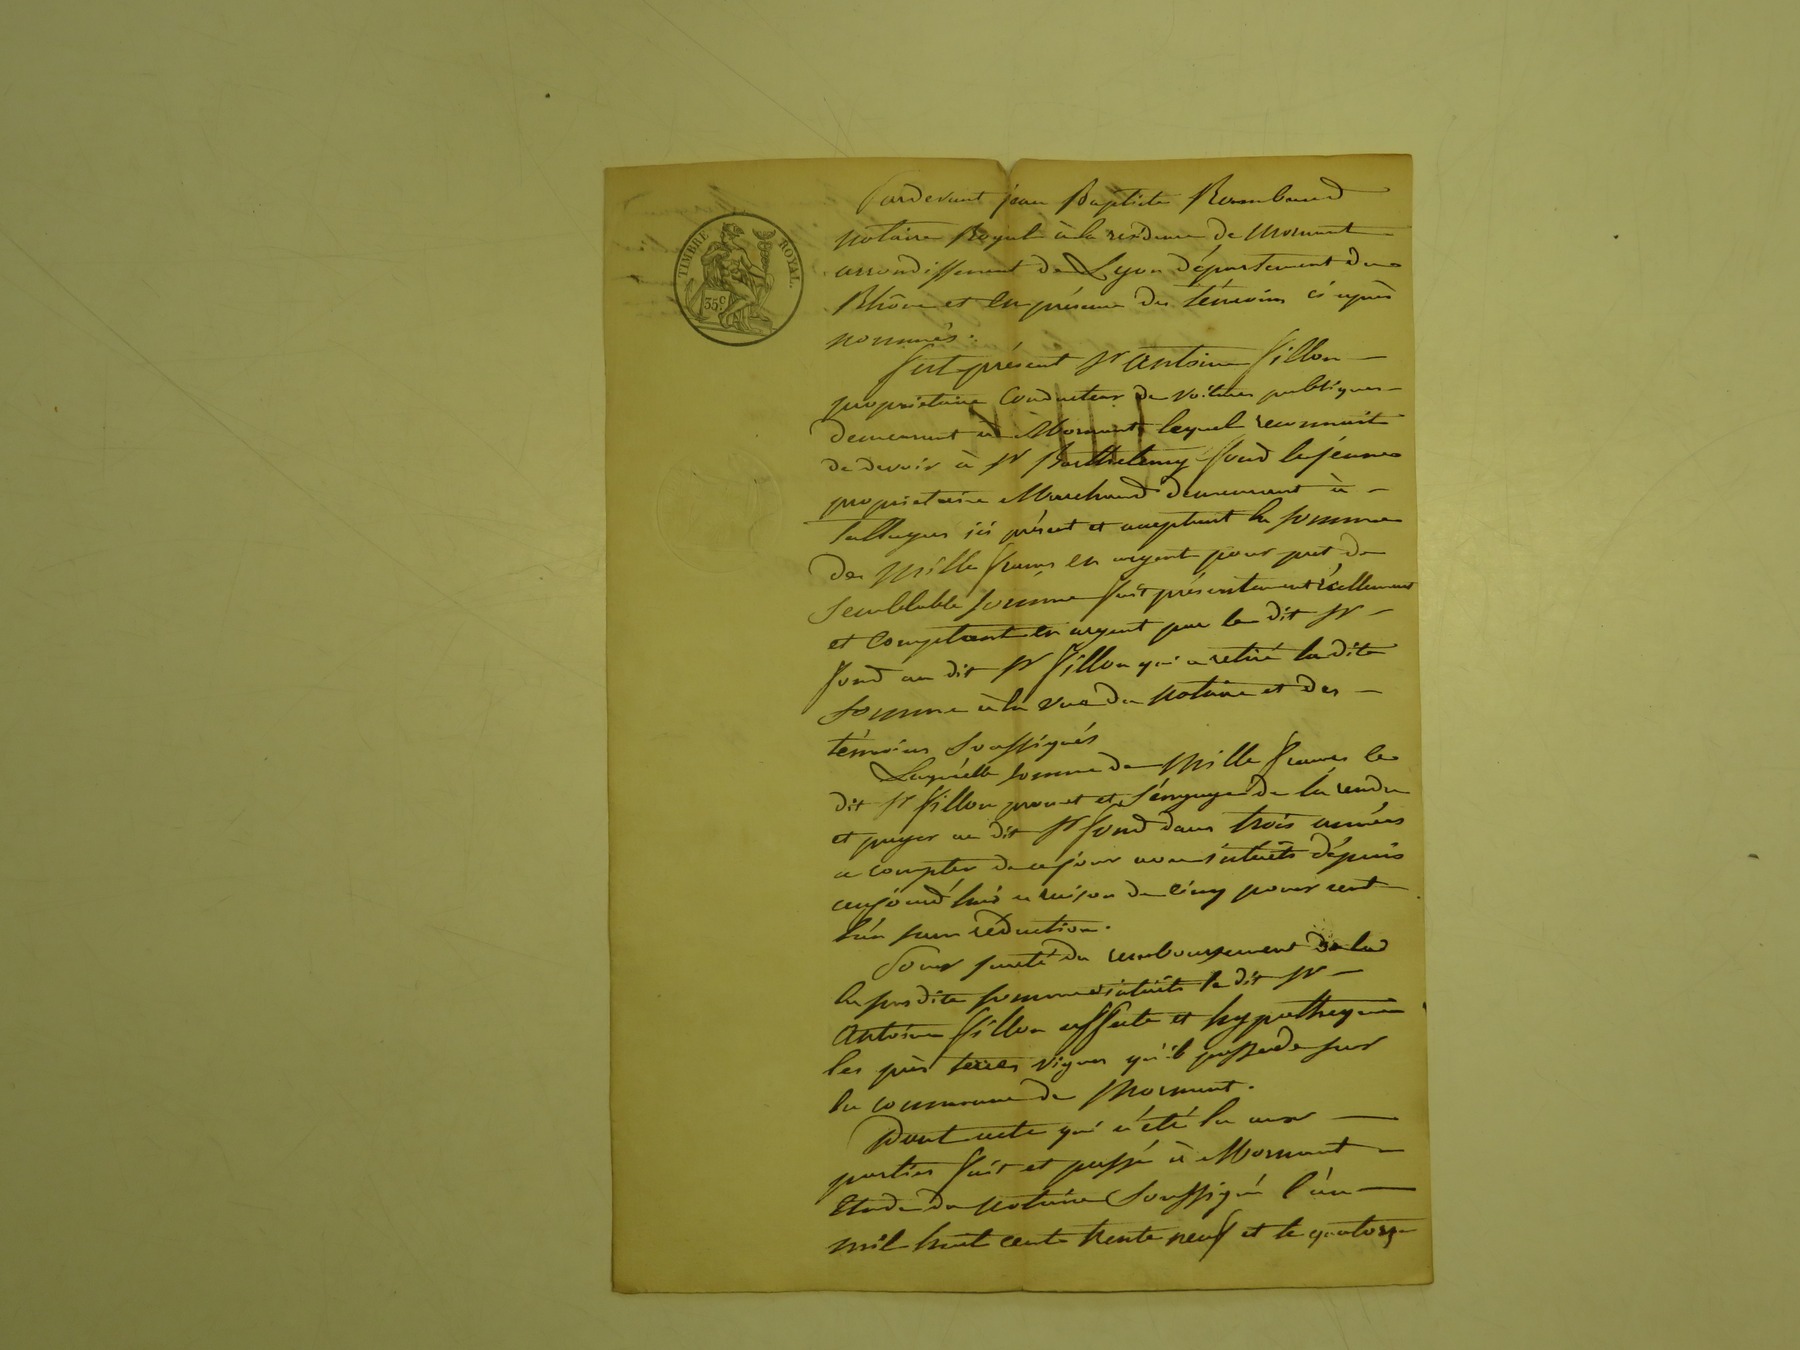 TIMBRE ROYAL.
35c.
Pardevant jean Baptiste Rambaud
notaire Royal à la residence de Mornant
arrondissement de Lyon département du
Rhône et en présence des témoins ci après
nommés.
fut présent Sr antoine fillon
proprietaire Conducteur de voitures publiques
demeurant à Mornant, lequel reconnait
de devoir à Sr Barthelemy fond le jeune
proprietaire Marchand demeurant à
talluyers ici présent et acceptant la somme
de Mille francs en argent pour pret de
semblable somme fait présentement réellement
et Comptant en argent par le dit Sr
fond au dit Sr fillon qui a retiré la dite
somme à la vue du notaire et des
témoins soussignés
Laquelle somme de Mille francs le
dit Sr fillon promet et s'engage de la rendre
et payer au dit Sr fond dans trois années
a compter de ce jour avec intérêts dépuis
aujourd'hui a raison de cinq pour cent
l'an sans réduction.
Pour sureté du remboursement de la
la susdite somme et intérêts le dit Sr
Antoine fillon affecte et hypothèque
les près terres vignes qu'il possede sur
la commune de Mornant.
Dont acte qui a été lu aux
parties fait et passé à Mornant
Etude du Notaire Soussigné l'an
mil huit cents trente neuf et le quatorze